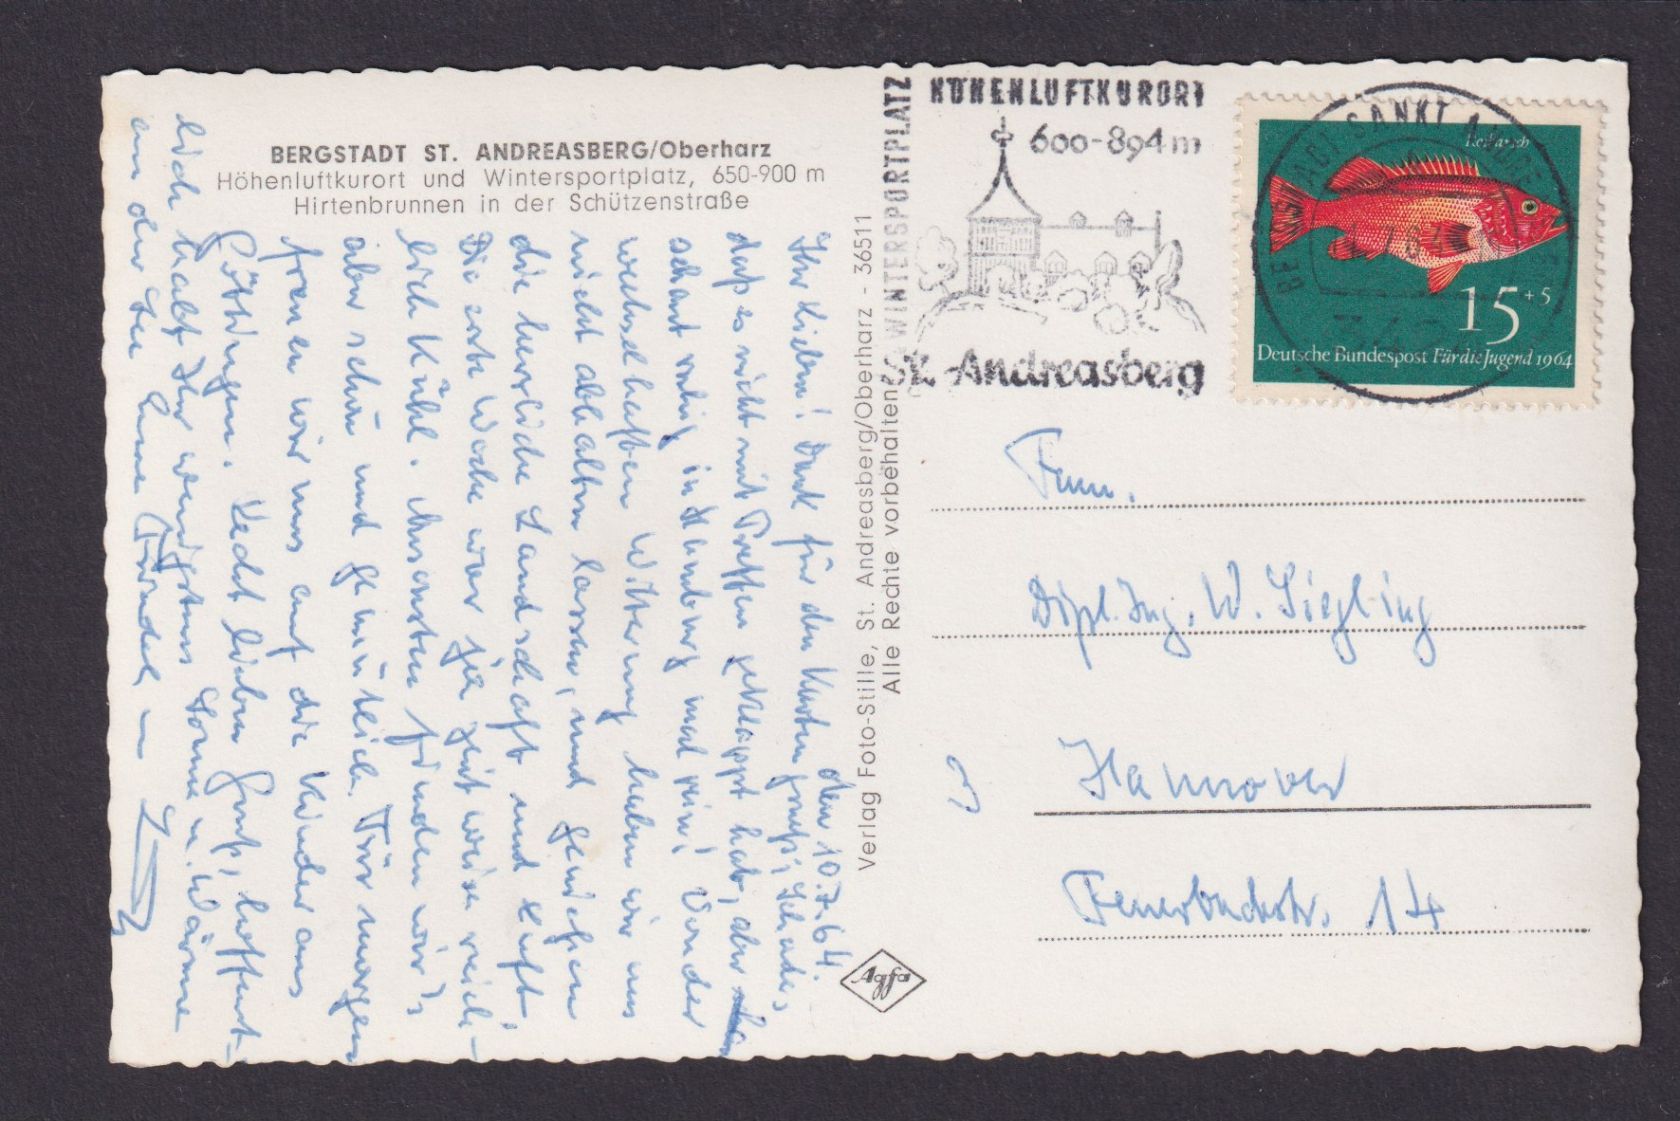 BERGSTADT ST. ANDREASBERG/Oberharz
Höhenluftkurort und Wintersportplatz, 650-900 m
Hirtenbrunnen in der Schützenstraße
den 10.7.64.
Ihr Lieben! Dank für den Kartengruß, Schade,
daß es nicht mit Treffen geklappt hat, aber
schaut ruhig in Hamburg mal rein! Von der
wechselhaften Witterung haben wir uns
nicht abhalten lassen, und genießen
die herrliche Landschaft und Luft!
Die erste Woche war ja zeitweise reich-
lich kühl. Ansonsten finden wir's
aber schön und gemütlich. Für morgen
freuen wir uns auf die Kinder aus
Göttingen. Recht lieben Gruß, hoffent-
lich habt Ihr wenigstens Sonne u. Wärme
an der
Verlag Foto-Stille, St. Andreasberg/Oberharz - 36511
Alle Rechte vorbehalten
Agfa
WINTERSPORTPLATZ
HÖHENLUFTKURORT
600-894 m
St. Andreasberg
SANKT
Rotbarsch
15+5
Deutsche Bundespost Für die Jugend 1964
Fam.
Dipl. Ing. W. Siegling
Hannover
Feuerbachstr. 14